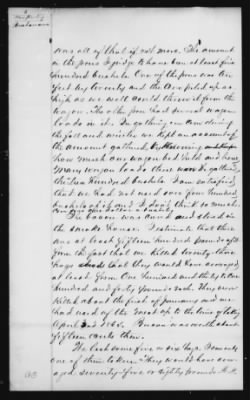 was all of that if not more. The amount
in the pens I judge to have been at least five
hundred bushels. One of the pens was ten
feet by twenty and the corn piled up as
high as we well could throw it from the
wagon. The other pen had several wagon
loads in it. In gathering our corn during
the fall and winter we kept an account of
the amount gathered, by
how much our wagon bed held and how
many wagon loads there were so gathered,
fifteen hundred bushels. I am satisfied
that we had not used over four hundred
bushels of it and I don't think so much.
Corn was one dollar a bushel
The bacon was cured and stood in
the smoke house. I estimate that there
was at least fifteen hundred pounds of it
from the fact that we killed twenty-three
hogs and that they would have averaged
at least from one hundred and thirty to one
hundred and forty pounds each. They were
killed about the first of January and we
had used of the meat up to the time of taking
April 2nd 1865. Bacon was worth about
fifteen cents then.
We lost some five or six hogs. I saw only
one of them taken. They would have aver-
aged seventy-five or eighty pounds.